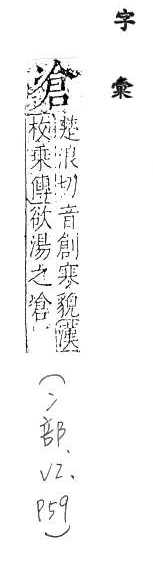 字彙
凔
楚浪切音創寒貌漢
枚乘傳欲湯之凔
(冫部、V2、P59)